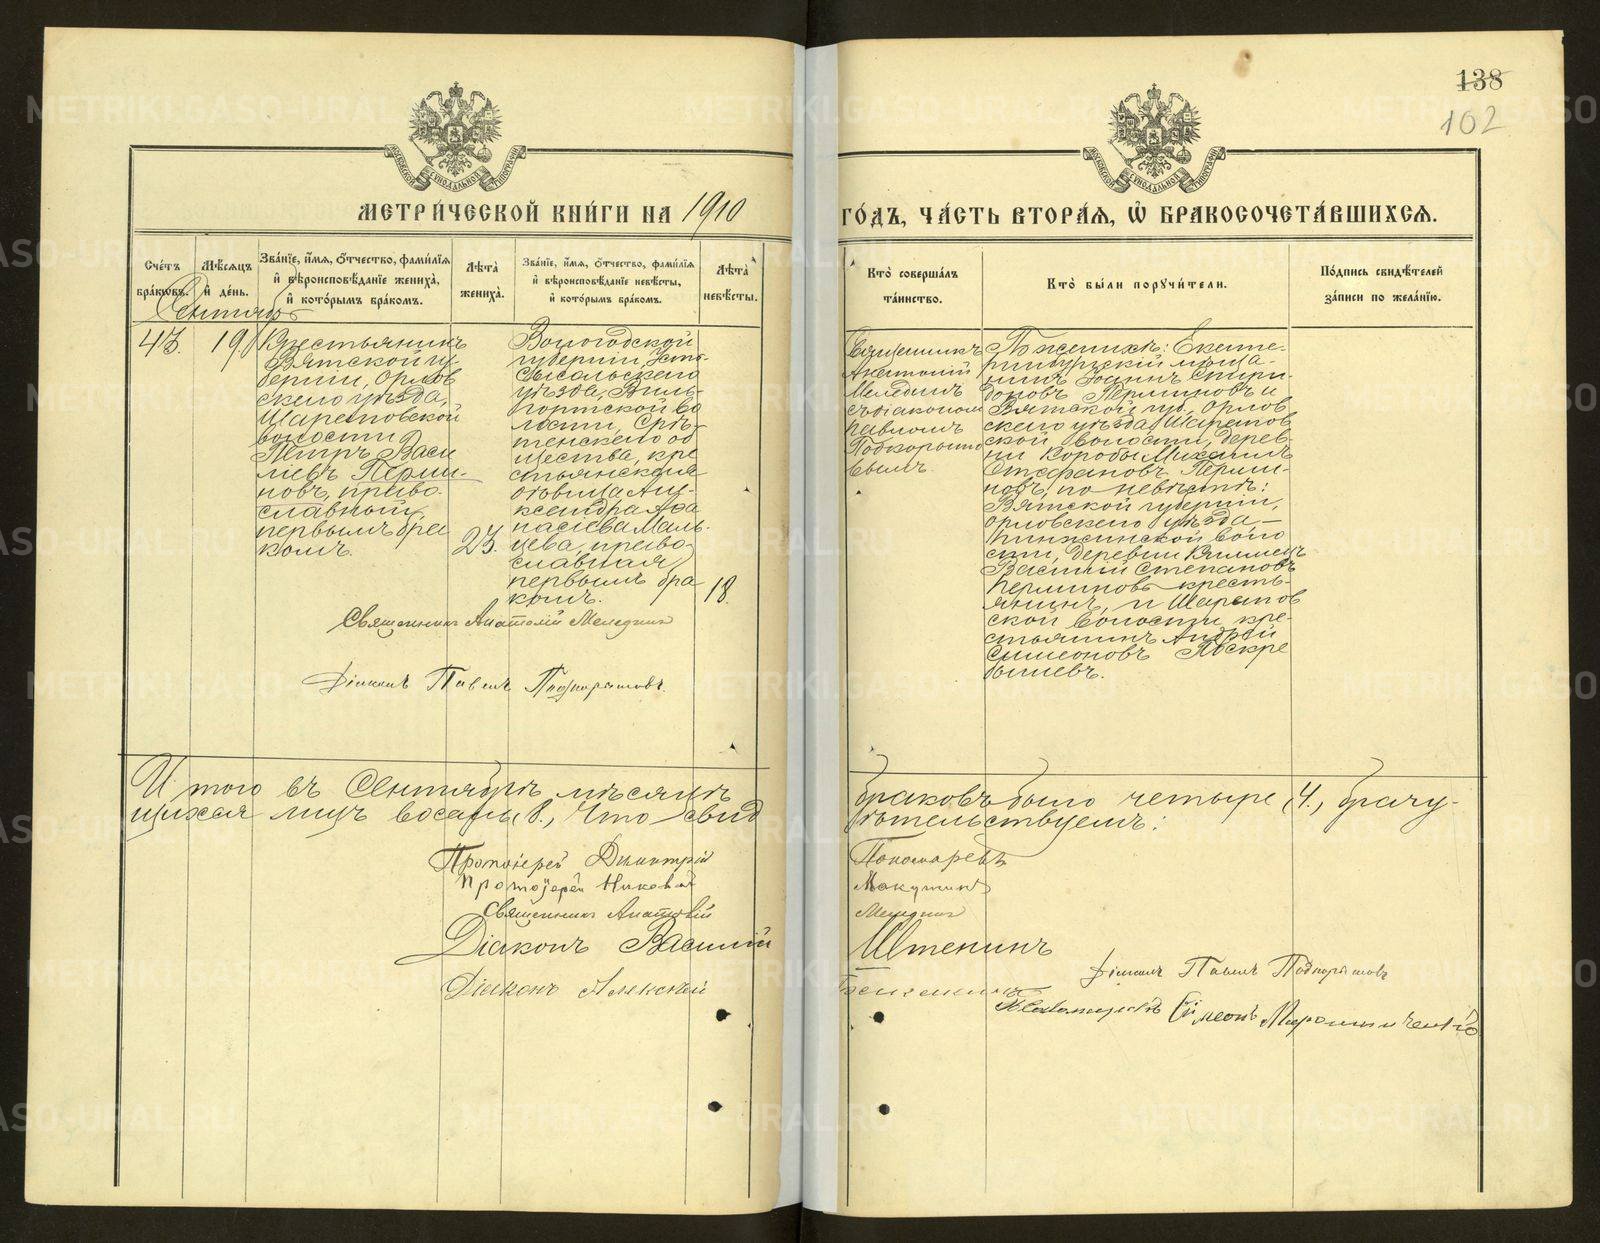 138
102
МЕТРИ́ЧЕСКОЙ КНИ́ГИ НА 1910
ГО́ДЪ, ЧА́СТЬ ВТОРА́Я, Ѿ БРАКОСОЧЕТА́ВШИХСЯ.
Сче́тъ бра́ковъ.
Мѣ́сяцъ и҆ де́нь.
Зва́нїе, и҆́мя, ѻ҆́тчество, фами́лїя и҆ вѣроисповѣ́данїе жениха̀, и҆ кото́рымъ бра́комъ.
Лѣта̀ жениха̀.
Зва́нїе, и҆́мя, ѻ҆́тчество, фами́лїя и҆ вѣроисповѣ́данїе невѣ́сты, и҆ кото́рымъ бра́комъ.
Лѣта̀ невѣ́сты.
Кто̀ соверша́лъ та́инство.
Кто̀ бы́ли порꙋчи́тели.
По́дпись свидѣ́телей за́писи по жела́нїю.
Сентябрь
43.
19.
Крестьянинъ
Вятской гу-
берніи, Орлов
скаго уѣзда,
Шараповской
волости
Петръ Васи
ліевъ Перми-
новъ, право-
славный,
первымъ бра
комъ.
23.
Вологодской
губерніи, Усть-
Сысольскаго
уѣзда, Виль-
гортской во
лости, Срѣ-
тенскаго об
щества, кре
стьянская
дѣвица Але-
ксандра Афа
насіева Маль-
цева, право-
славная,
первымъ бра
комъ.
18.
Священникъ
Анатолій
Мелединъ
съ діакономъ
Павломъ
Подкорыто
вымъ.
По женихѣ: Екате-
ринбургскій мѣща-
нинъ Іоаннъ Спири-
доновъ Перминовъ и
Вятской губ., Орлов
скаго уѣзда, Шарапов
ской волости, дерев-
ни Коробы Михаилъ
Стефановъ Перми-
новъ; по невѣстѣ:
Вятской губерніи,
Орловскаго уѣзда
Пинжинской воло
сти, деревни
Василій Степановъ
Перминовъ кресть-
янинъ, и Шарапов
ской волости кре-
стьянинъ Андрей
Симеоновъ Поскре
бышевъ.
Священникъ Анатолій Меледин
Діаконъ Павелъ Подкорытовъ.
Итого въ Сентябрѣ мѣсяцѣ браковъ было четыре (4., брачу-
щихся лицъ восемь (8., Что свидѣтельствуемъ:
Протоіерей Димитрій Пономаревъ
Протоіерей Николай
Священникъ Анатолій Меледин
Діаконъ Василій Иtтенинъ
Діаконъ Павелъ Подкорытовъ
Діаконъ Алексѣй
Псаломщикъ Симеонъ
METRIKI.GASO-URAL.RU